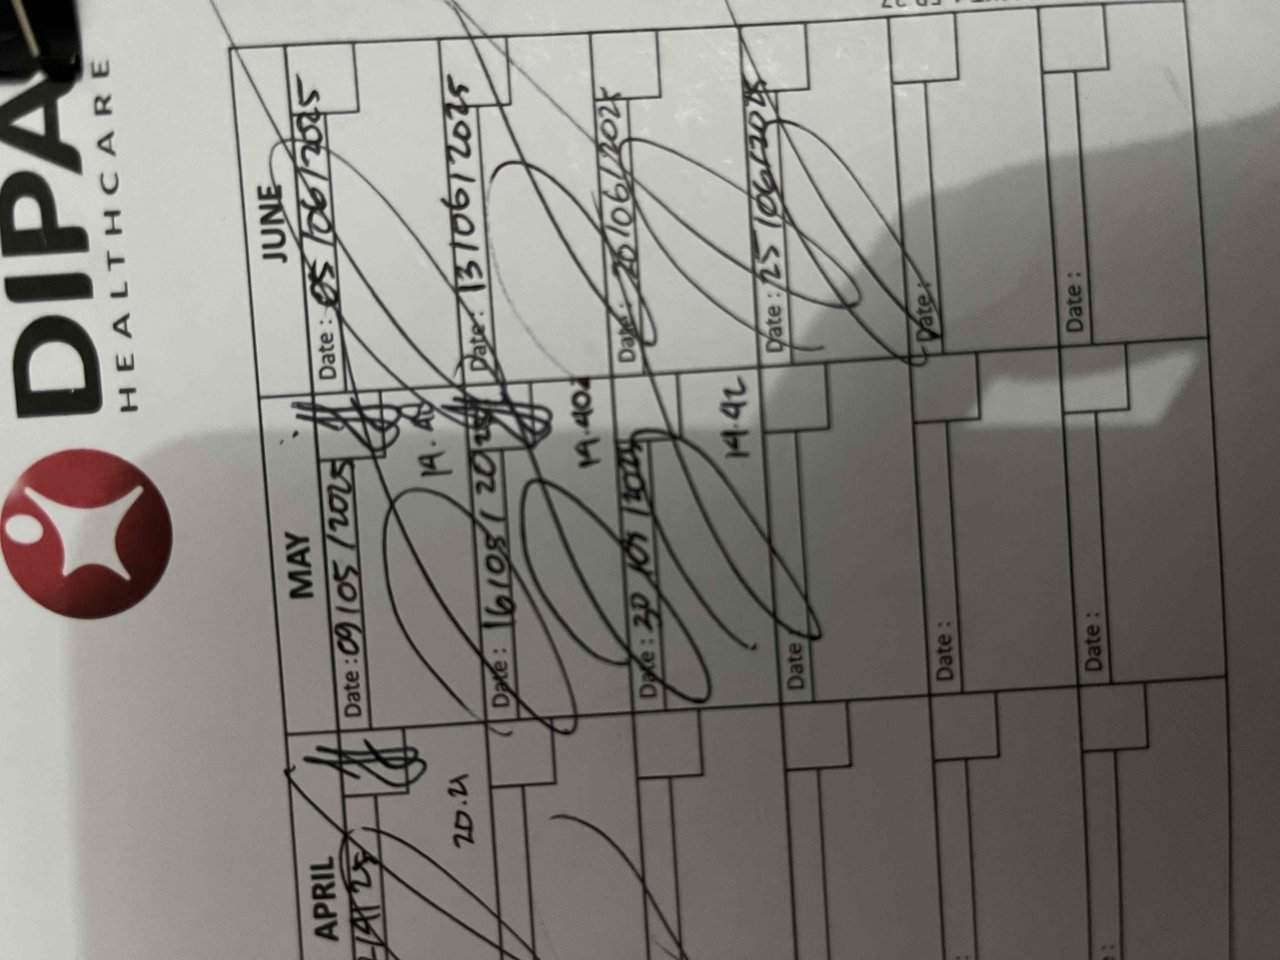 DIPA
HEALTHCARE
APRIL
20.21
MAY
Date : 09/05/2025
Date : 16/05/2025
19.40
Date :
19.42
Date :
Date :
Date :
JUNE
Date : 05/06/2025
Date : 13/06/2025
Date : 20/06/2025
Date : 25/06/2025
Date :
Date :